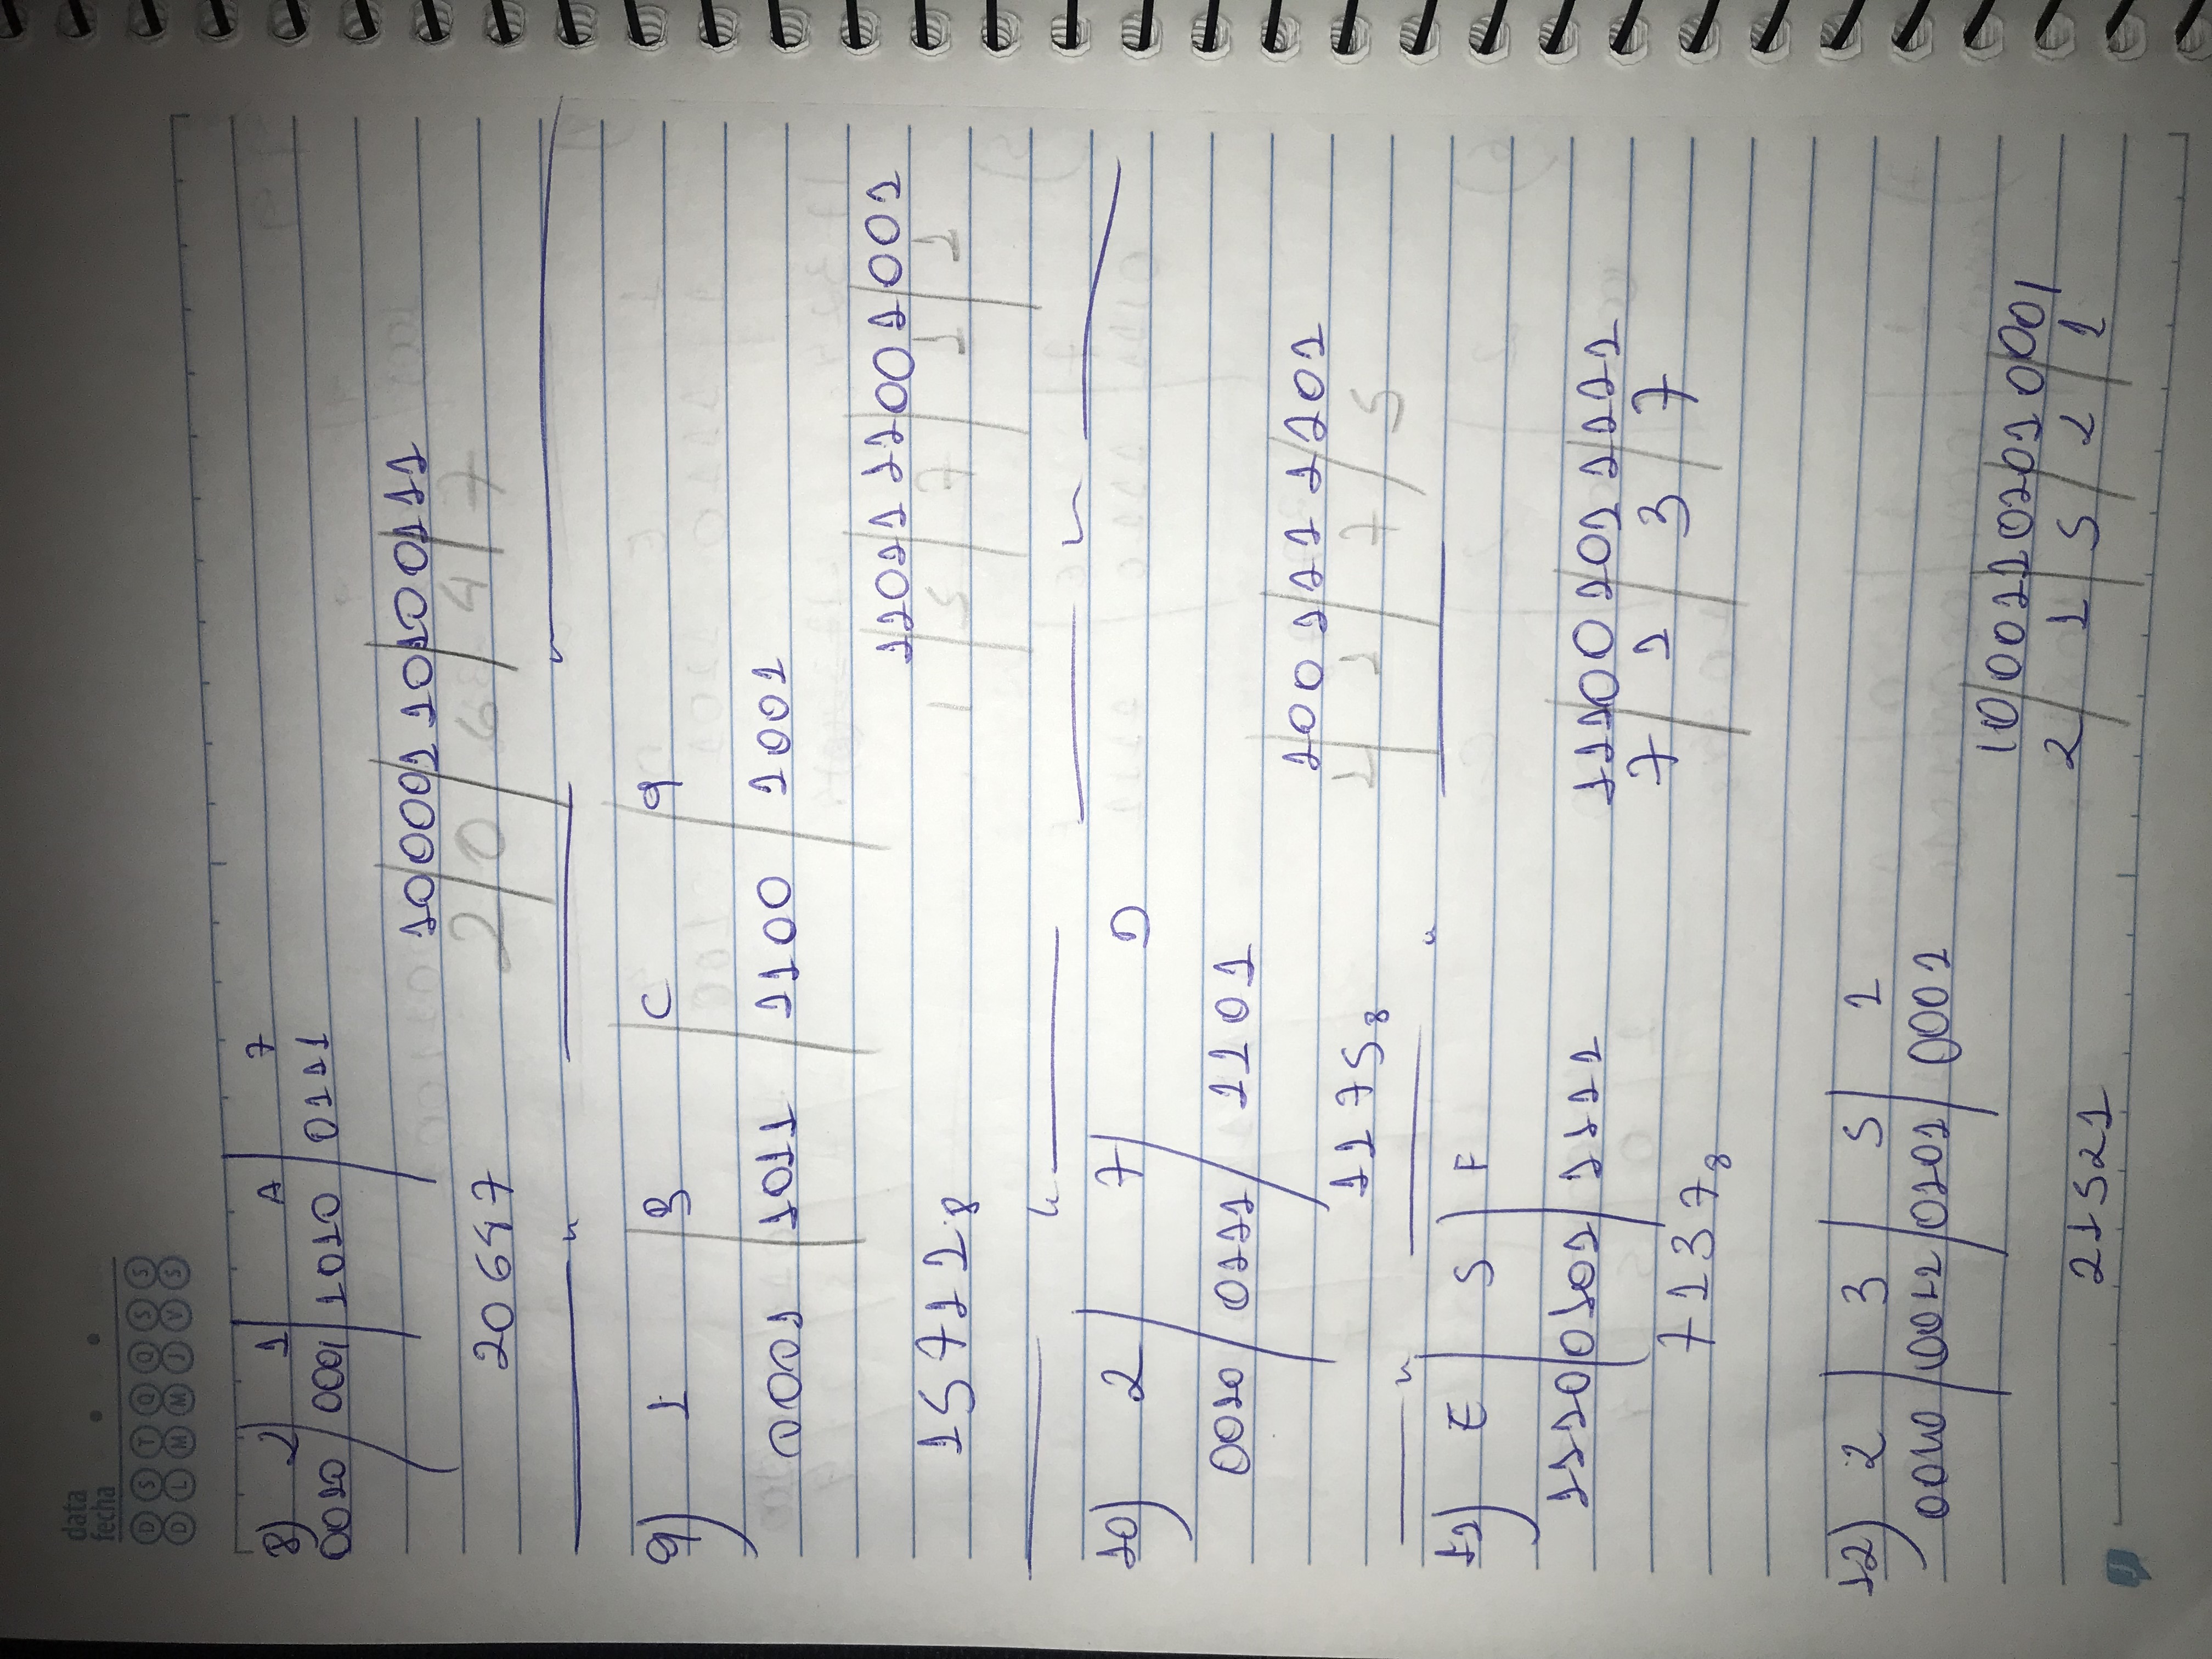 data
fecha
D S T Q Q S S
D L M M J V S
8) 2 1 A 7
0010 0001 1010 0111
10000110100111
20647 2 0 6 4 7
9) 1 B C 9
0001 1011 1100 1001
1101111001001
15711₈ 1 5 7 1 1
10) 2 7 D
0010 0111 1101
1001111101
1175₈ 1 1 7 5
11) E 5 F
1110 0101 1111 111001011111
7 1 3 7
7137₈
12) 2 3 5 1
0010 0011 0101 0001
10001101010001
21521 2 1 5 2 1